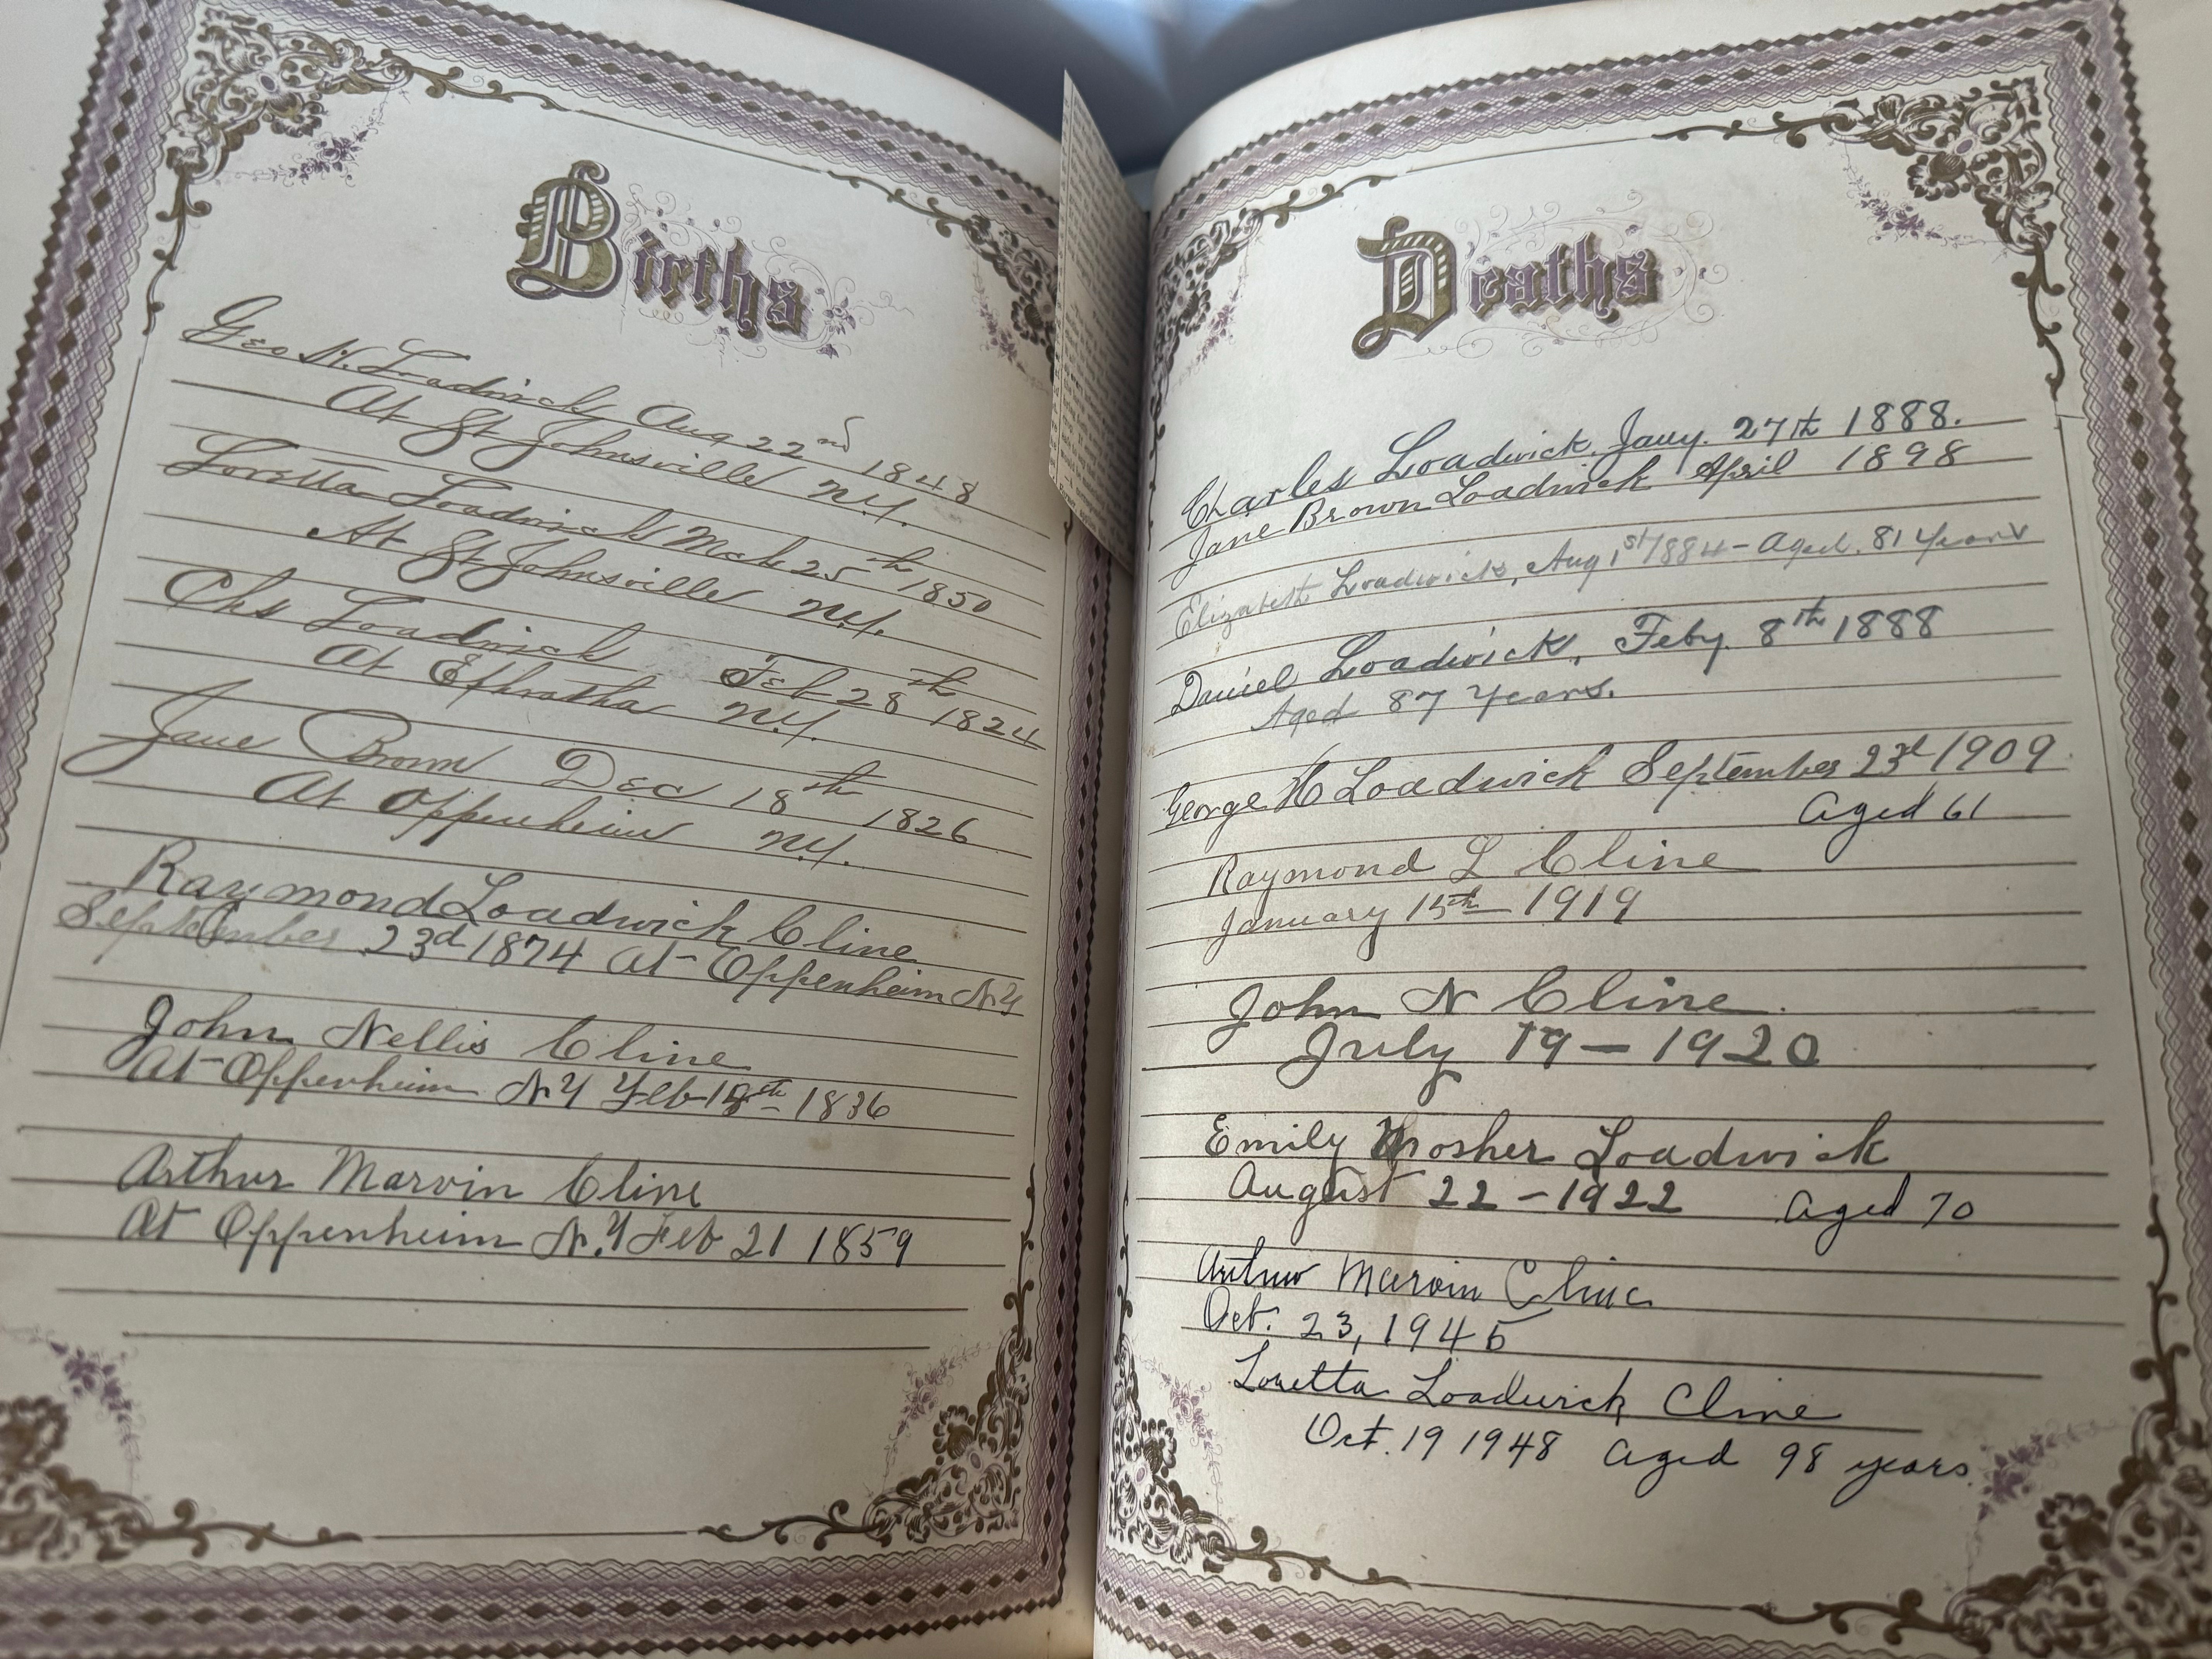 Births
Geo H. Loadwick Aug 22nd 1848
At St Johnsville N.Y.
Loretta Loadwick Mch 25th 1850
At St Johnsville N.Y.
Chs Loadwick Feb 28th 1824
At Ephratha N.Y.
Jane Brown Dec 18th 1826
At Oppenheim N.Y.
Raymond Loadwick Cline
September 23d 1874 At Oppenheim N.Y
John Nellis Cline
At Oppenheim N Y Feb th 1836
Arthur Marvin Cline
At Oppenheim N.Y Feb 21 1859
Deaths
Charles Loadwick, Jany. 27th 1888.
Jane Brown Loadwick April 1898
Elizabeth Loadwick, Aug 1st 1884 - Aged. 81 Years
Daniel Loadwick, Feby. 8th 1888
Aged 87 Years.
George H Loadwick September 23d 1909
Aged 61
Raymond L Cline
January 15th 1919
John N Cline.
July 19 - 1920
Emily Mosher Loadwick
August 22 - 1922 Aged 70
Arthur Marvin Cline
Oct. 23, 1945
Loretta Loadwick Cline
Oct. 19 1948 Aged 98 years.